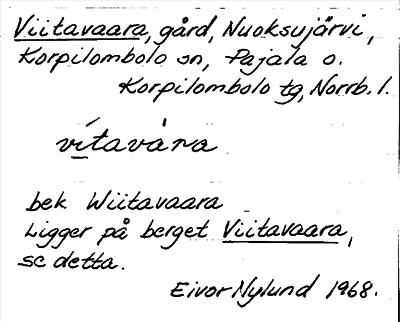 Viitavaara, gård, Nuoksujärvi,
Korpilombolo sn, Pajala o.
Korpilombolo tg, Norrb. l.
vítavàra
bek Wiitavaara
Ligger på berget Viitavaara,
se detta.
Eivor Nylund 1968.